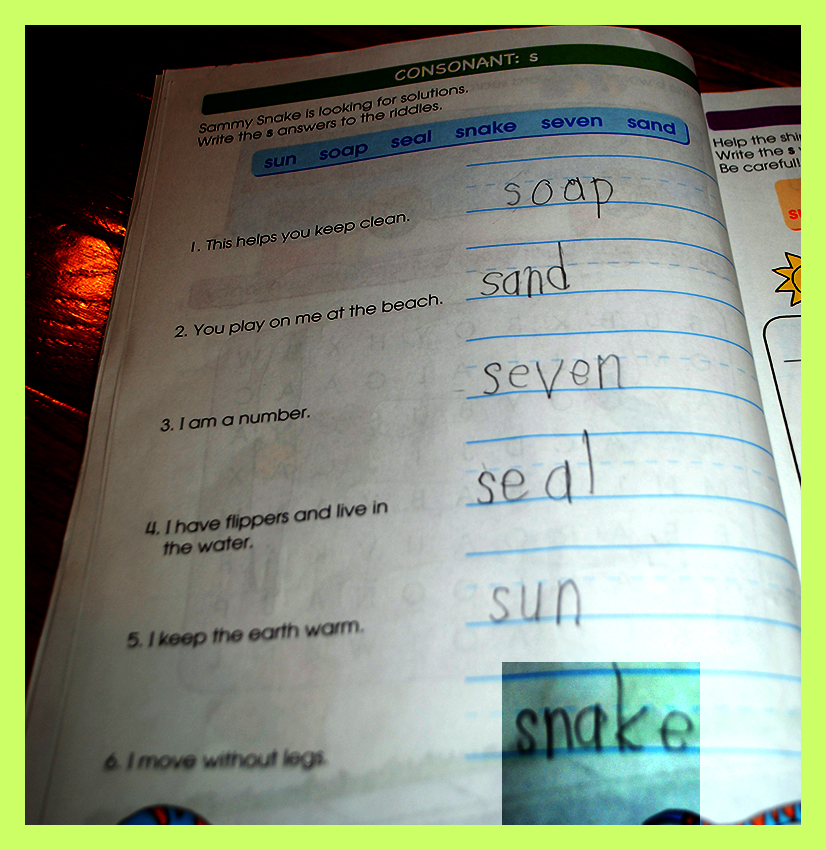 CONSONANT: s
Sammy Snake is looking for solutions.
Write the s answers to the riddles.
sun soap seal snake seven sand
soap
1. This helps you keep clean.
sand
2. You play on me at the beach.
seven
3. I am a number.
seal
4. I have flippers and live in
the water.
sun
5. I keep the earth warm.
snake
6. I move without legs.
Help the
Write the s
Be careful!